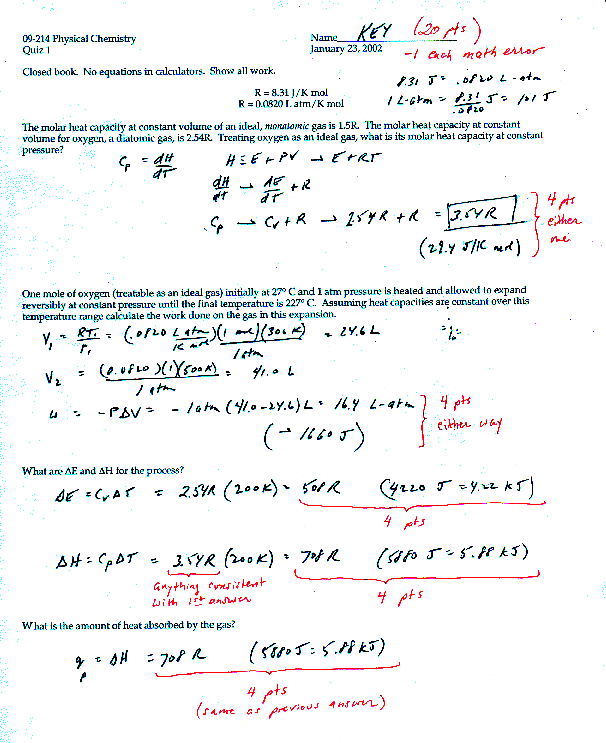 09-214 Physical Chemistry
Quiz 1
Name KEY (20 pts)
January 23, 2002
-1 each math error
Closed book. No equations in calculators. Show all work.
8.31 J = .0820 L-atm
R = 8.31 J/K mol
R = 0.0820 L atm/K mol
1 L-atm = 8.31/.0820 J = 101 J
The molar heat capacity at constant volume of an ideal, monatomic gas is 1.5R. The molar heat capacity at constant
volume for oxygen, a diatomic gas, is 2.54R. Treating oxygen as an ideal gas, what is its molar heat capacity at constant
pressure?
Cp = dH/dT H ≡ E + PV → E + RT
dH/dT → dE/dT + R
Cp → Cv + R → 2.54R + R = 3.54R
(29.4 J/K mol)
4 pts
either
one
One mole of oxygen (treatable as an ideal gas) initially at 27° C and 1 atm pressure is heated and allowed to expand
reversibly at constant pressure until the final temperature is 227° C. Assuming heat capacities are constant over this
temperature range calculate the work done on the gas in this expansion.
V1 = RT1/P1 = (.0820 L atm/K mol)(1 mol)(300K)/1 atm = 24.6 L
V2 = (0.0820)(1)(500K)/1 atm = 41.0 L
w = -PΔV = -1atm (41.0-24.6)L = 16.4 L-atm
(-1660 J)
4 pts
either way
What are ΔE and ΔH for the process?
ΔE = CvΔT = 2.54R (200K) = 508R (4220 J = 4.22 kJ)
4 pts
ΔH = CpΔT = 3.54R (200K) = 708R (5880 J = 5.88 kJ)
anything consistent
with 1st answer
4 pts
What is the amount of heat absorbed by the gas?
qp = ΔH = 708 R (5880 J = 5.88 kJ)
4 pts
(same as previous answer)